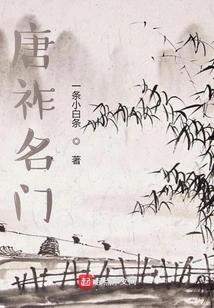 唐祚名门
一条小白条◎著